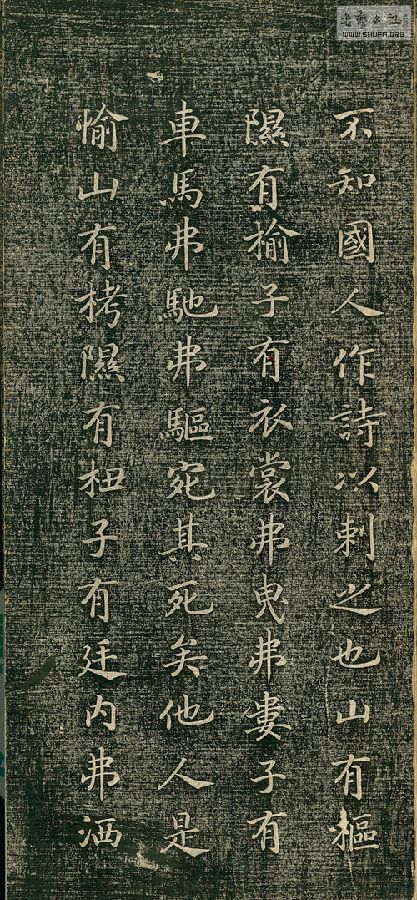 不知國人作詩以刺之也山有樞
隰有榆子有衣裳弗曳弗婁子有
車馬弗馳弗驅宛其死矣他人是
愉山有栲隰有杻子有廷內弗洒
WWW.SHUFA.ORG